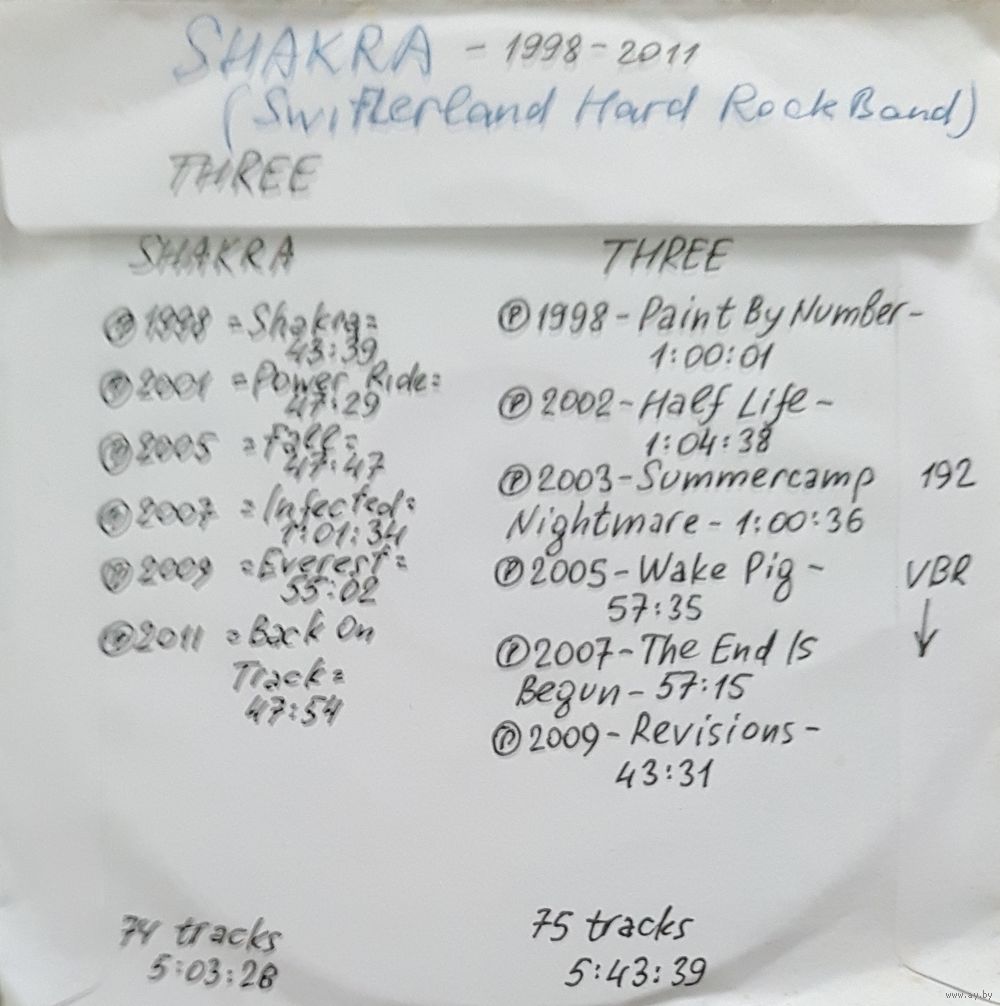 SHAKRA - 1998-2011
(Switlerland Hard Rock Band)
THREE
SHAKRA
Ⓟ 1998 =Shakra=
43:39
Ⓟ 2001 =Power Ride=
47:29
Ⓟ 2005 =Fall=
47:47
Ⓟ 2007 =Infected=
1:01:34
Ⓟ 2009 =Everest=
55:02
Ⓟ 2011 =Back On
Track=
47:54
74 tracks
5:03:28
THREE
Ⓟ 1998-Paint By Number-
1:00:01
Ⓟ 2002-Half Life-
1:04:38
Ⓟ 2003-Summercamp
Nightmare-1:00:36
Ⓟ 2005-Wake Pig-
57:35
Ⓟ 2007-The End Is
Begun-57:15
Ⓟ 2009-Revisions-
43:31
75 tracks
5:43:39
192
VBR
↓
www.ay.by